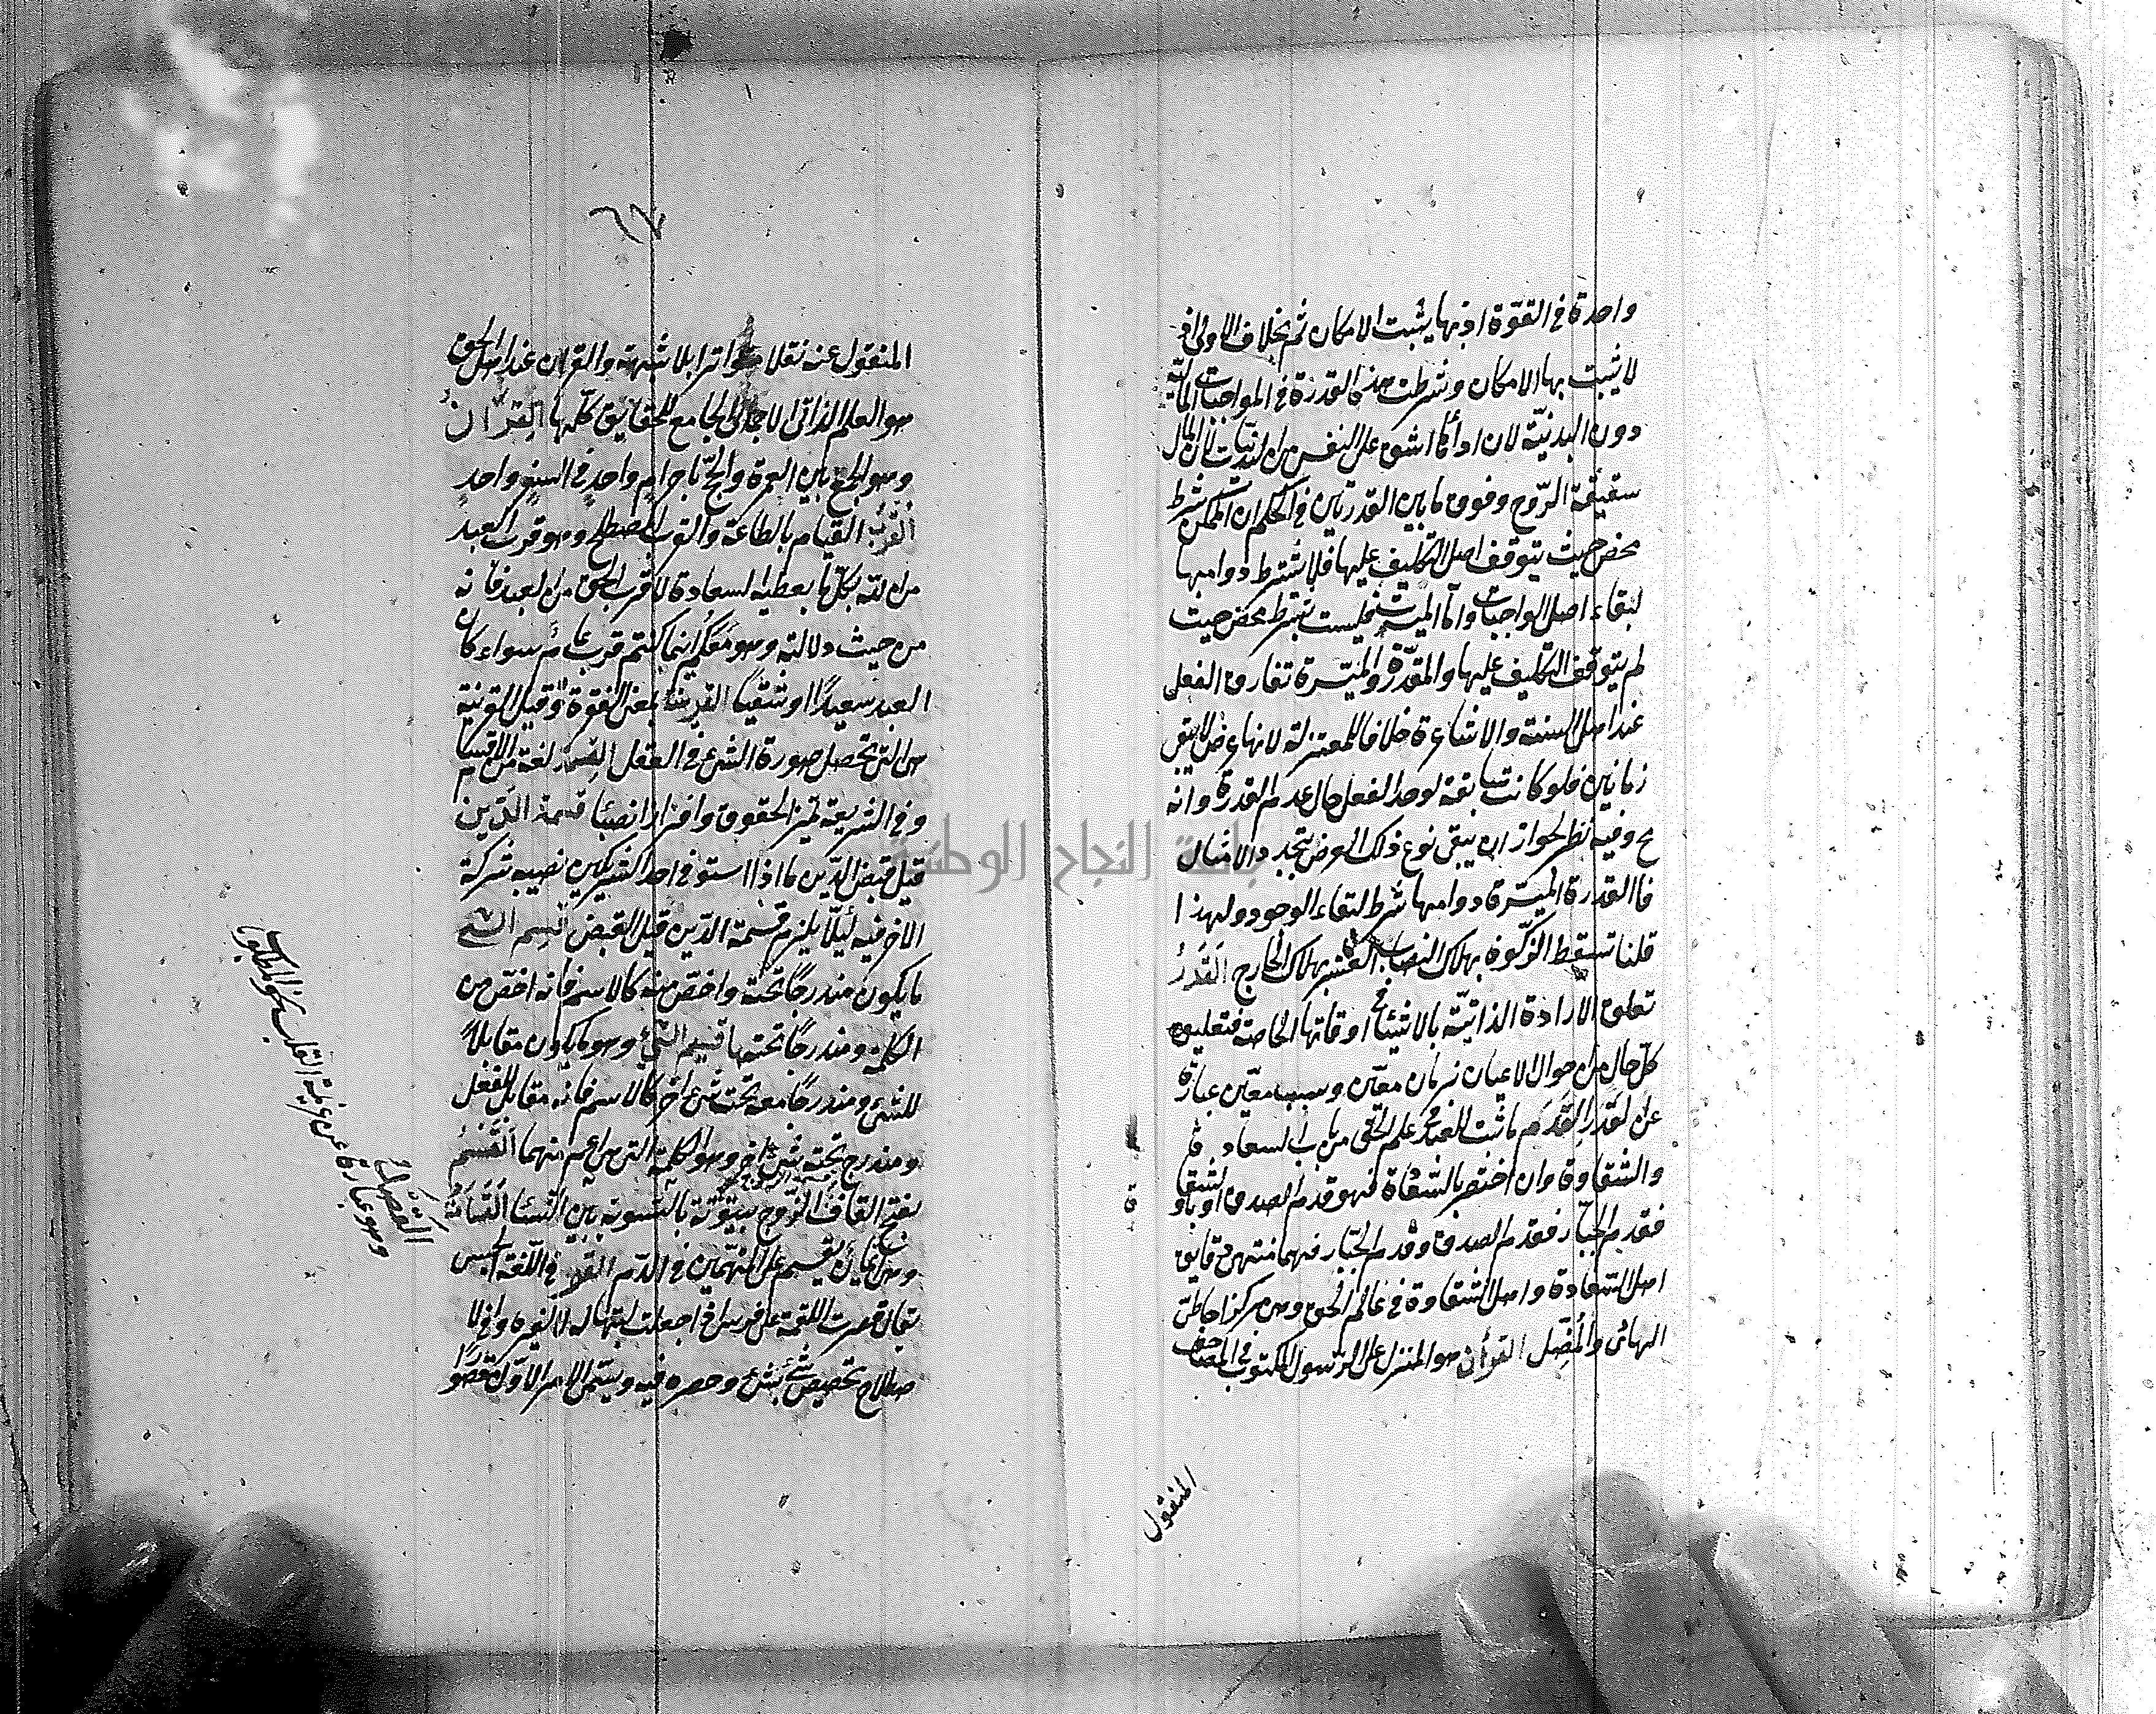 واحدة في القوّة اذ بها يثبت الامكان ثم بخلاف الاولى اذ
لا يثبت بها الامكان وشرطت هذه القدرة في الواجبات المالية
دون البدنيّة لان اداءها اشق على النفس من البدنيات لان المال
شقيقة الرّوح وفرق ما بين القدرتين في الحكم ان الممكنة شرط
محض حيث يتوقف اصل التكليف عليها فلا يشترط دوامها
لبقاء اصل الواجبات واما الميسرة فليست بشرط محض حيث
لم يتوقف التكليف عليها والمقدّرة والميّسرة تقارن الفعل
عند اهل السنة والاشاعرة خلافا للمعتزلة لانها عرض لا يبقى
زمانين فلو كانت سابقة لوجد الفعل حال عدم القدرة وانه
مح وفيه نظر لجواز ان يبقى نوع ذلك العرض بتجدد الامثال
فالقدرة الميسّرة دوامها شرط لبقاء الوجود ولهذا
قلنا تسقط الزكوة بهلاك النصاب والعشر بهلاك الخارج القَدَرُ
تعلق الارادة الذاتيّة بالاشياء في اوقاتها الخاصة فتعليق
كلّ حال من احوال الاعيان بزمان معيّن وسبب معيّن عبارة
عن القدر القَدَم ما ثبت للعبد في علم الحق من باب السعادة
والشقاوة وان اختص بالسّعادة فهو قدم الصدق او بالشقاوة
فقدم الجبّار فقدم الصدق وقدم الجبّار فهما منتهى رقايق
اهل السّعادة واهل الشقاوة في عالم الحق وهي مركز احاطتي
الهادى والمُضِّل القرأن هو المنزل على الرسول المكتوب في المصاحف
المنقول
٦٧
المنقول عنه نقلا متواترا بلا شبهة والقران عند اهل الحق
هو العلم اللدنى الاجمالى الجامع للحقايق كلّها القِرَانُ
وهو الجمع بين العمرة والحجّ باحرام واحد في السفر واحد
القُربُ القيام بالطاعة والقرب المصطلح وهو قرب العبد
من الله بكل ما يعطيه السعادة لا قرب الحق من العبد فانه
من حيث دلالة وهو معكم اينما كنتم قرب عام سواء كان
العبد سعيدًا او شقيّا القرينة بمعنى الفقرة وقيل القرينة
هي التى تحصل صورة الشئ في العقل القسمة لغة من الاقتسام
وفي الشريعة تميز الحقوق وافراز انصبا قسمة الدّين
قبل قبض الدّين ما اذا استوفى احد الشريكين نصيبه شركة
الاخر فيه ليلّا يلزم قسمة الدّين قبل القبض قسم الشئ
ما يكون مندرجًا تحته واخصّ منه كالاسم فانه اخص من
الكلمة ومندرجًا تحتها قسيم الشئ وهو ما يكون مقابلاً
للشئ ومندرجًا معه تحت شئ اخر كالاسم فانه مقابل للفعل
ومندرج تحت شئ اخر وهو الكلمة التى هي اعم منهما القَسْمُ
بفتح القاف الزّوج بيتوتة بالتسوية بين النساء القَسَامَةُ
وهي ايمان يقسم على المتهمين في الدّم القصر في اللّغة الحبس
يقال قصرت اللقحة على فرسى اذا جعلت لبنها له لا لغيره وفي الا
صطلاح تخصيص شئ بشئ وحصره فيه ويسمّى الامر الاوّل مقصورا
القصد
وهو عبارة عن عزيمة القلب نحو المطلوب